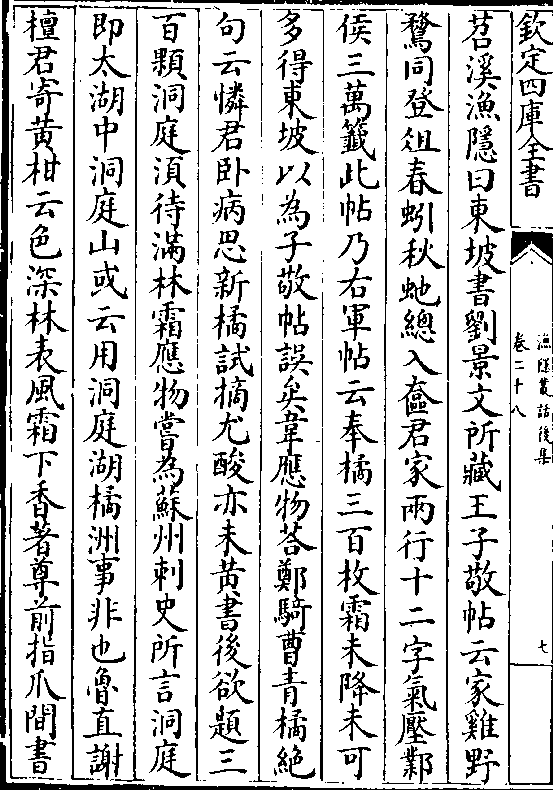 欽定四庫全書
漁隱叢話後集
卷二十八
七
苕溪漁隱曰東坡書劉景文所藏王子敬帖云家雞野
鶩同登俎春蚓秋虵總入奩君家兩行十二字氣壓鄴
侯三萬籤此帖乃右軍帖云奉橘三百枚霜未降未可
多得東坡以為子敬帖誤矣韋應物荅鄭騎曹青橘絶
句云憐君卧病思新橘試摘尤酸亦未黄書後欲題三
百顆洞庭湏待滿林霜應物嘗為蘇州刺史所言洞庭
即太湖中洞庭山或云用洞庭湖橘洲事非也魯直謝
檀君寄黄柑云色深林表風霜下香著尊前指爪間書